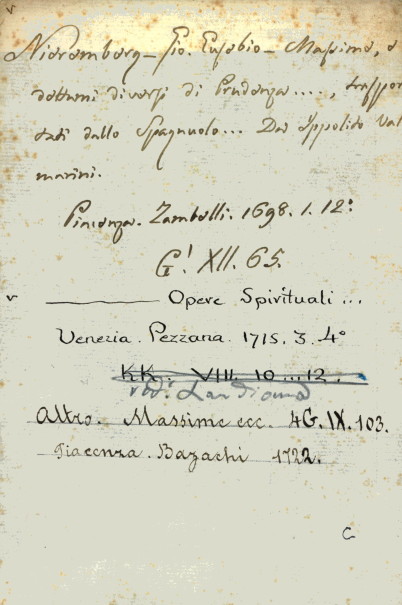 Nieremberg - Gio. Eusebio - Massime, e
dettami diversi di Prudenza ...., traspor
tati dallo Spagnuolo ... Da Ippolito Val
marini.
Piacenza. Zambelli. 1698. 1. 12°
G! XII. 65.
——— Opere Spirituali ...
Venezia. Pezzana. 1715. 3. 4°
KK. VIII. 10 ... 12.
vedi Landiana
Altro. Massime ecc. 4G. IX. 103.
Piacenza. Bazachi 1722.
C